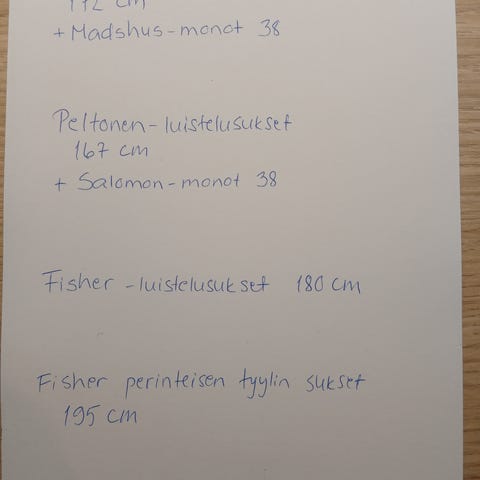 172 cm
+ Madshus-monot 38
Peltonen-luistelusukset
167 cm
+ Salomon-monot 38
Fisher -luistelusukset 180 cm
Fisher perinteisen tyylin sukset
195 cm